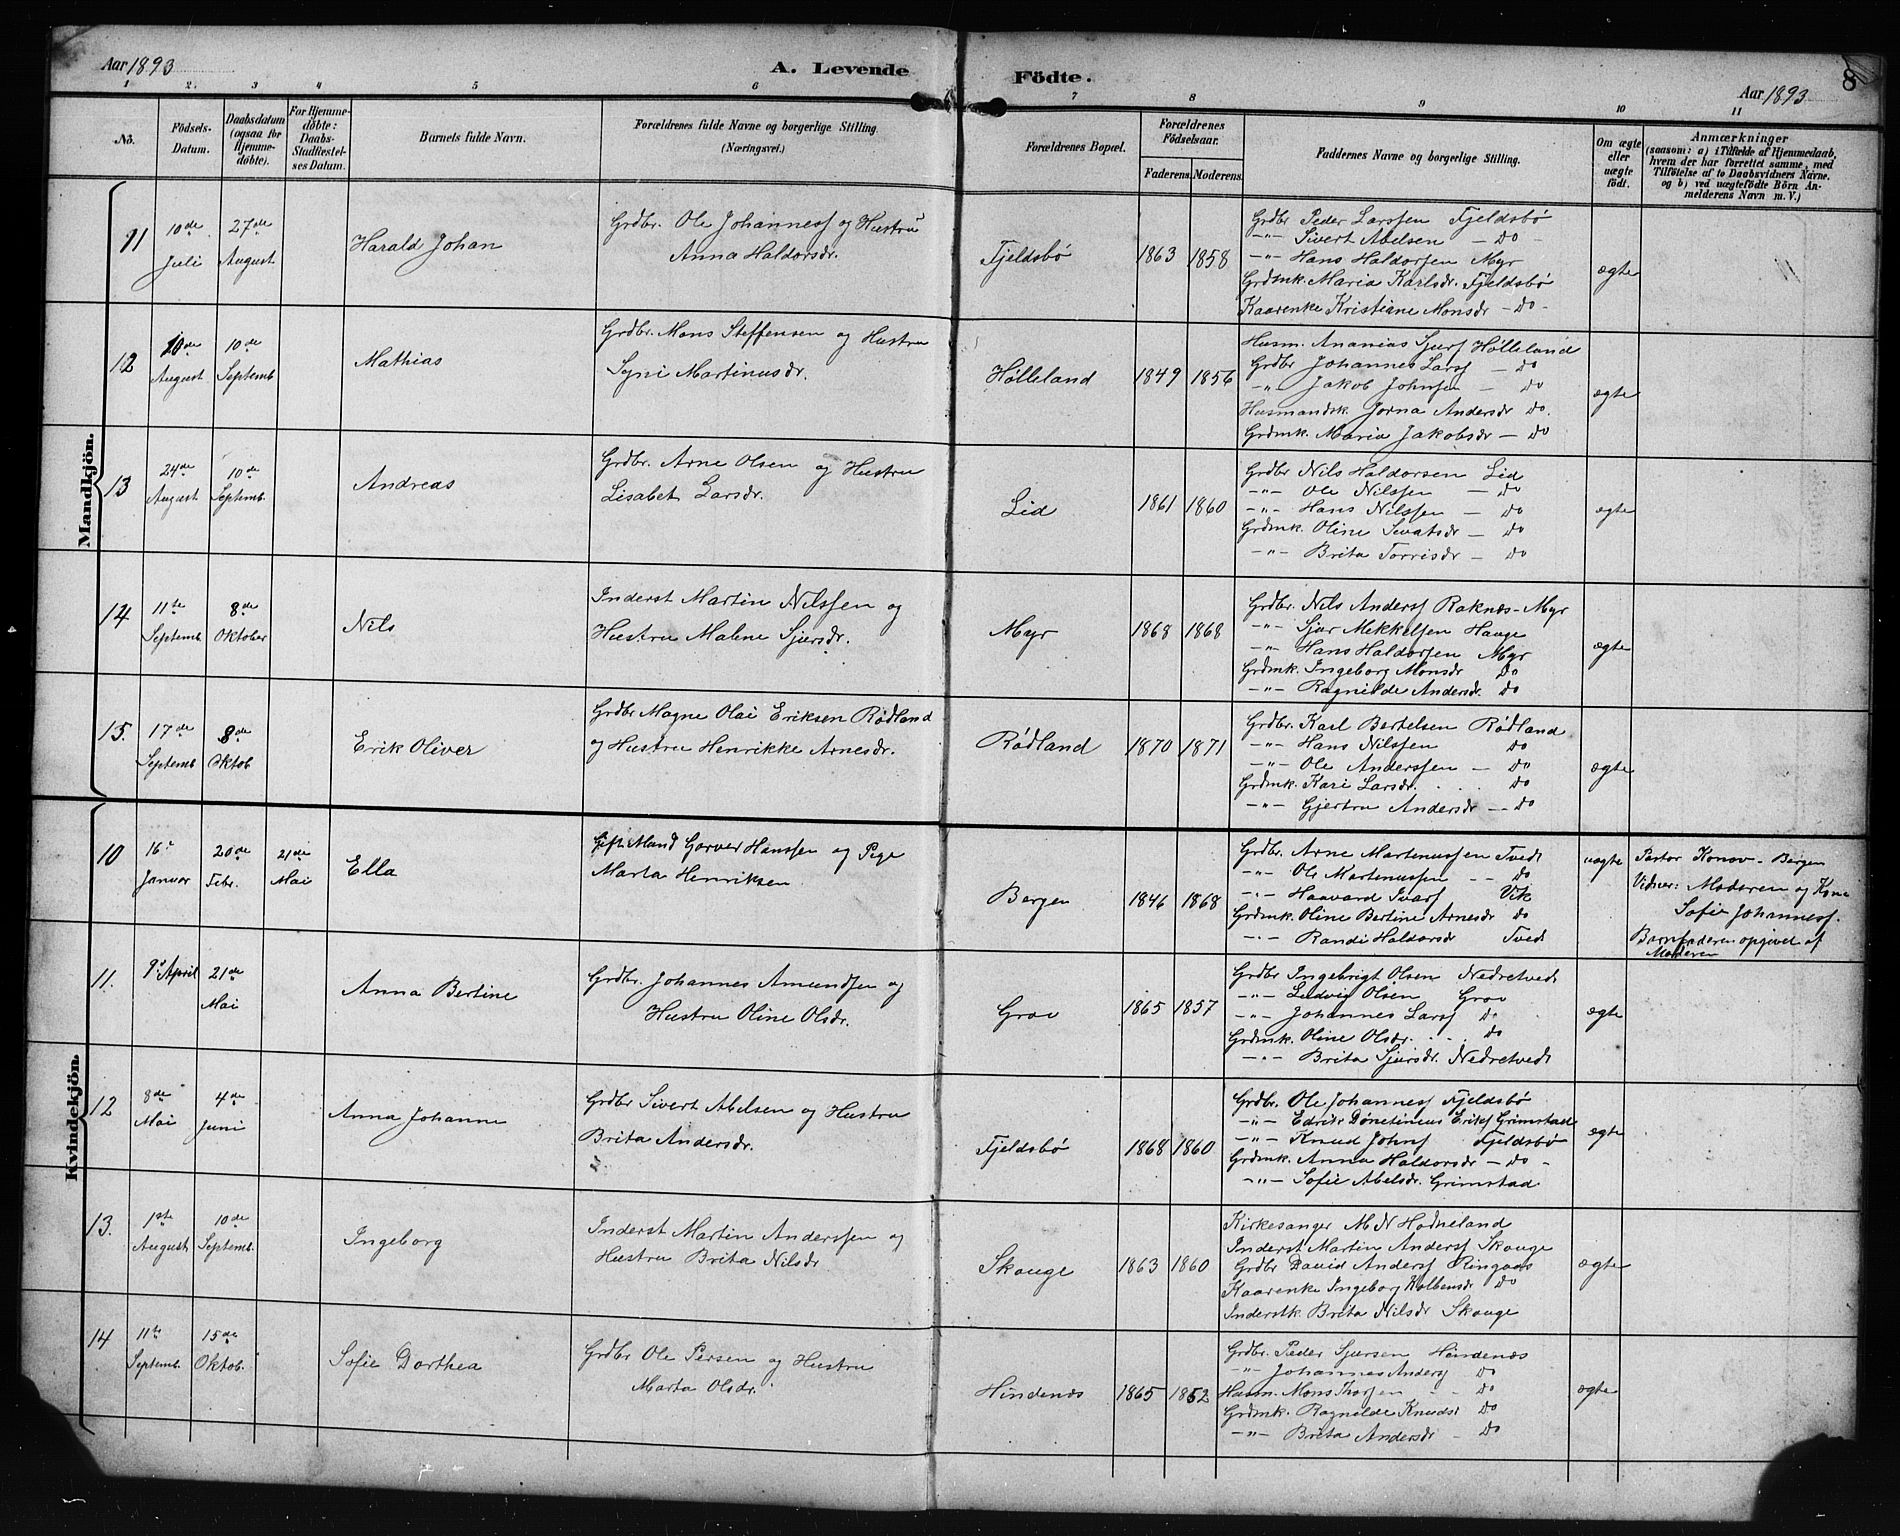 Aar 1893
A. Levende Födte.
Aar 1893
8
1 2. 3 4 5 6 7 8 9 10 11
No.
Födsels-Datum.
Daabsdatum (ogsaa for Hjemmedöbte).
For Hjemmedöbte: Daabs-Stadfæstelses Datum.
Barnets fulde Navn.
Forældrenes fulde Navne og borgerlige Stilling. (Næringsvei.)
Forældrenes Bopæl.
Forældrenes Födselsaar.
Faderens. Moderens.
Faddernes Navne og borgerlige Stilling.
Om ægte eller uægte födt.
Anmærkninger
(saasom: a) i Tilfælde af Hjemmedaab, hvem der har forrettet samme, med Tilföielse af to Daabsvidners Navne, og b) ved uægtefödte Börn Anmelderens Navn m. V.)
Mandkjön.
11
10de Juli
27de August
Harald Johan
Grdbr. Ole Johannesf og Hustru
Anna Haldorsdr.
Fjeldsbö
1863 1858
Grdbr Peder Larssen Fjeldsbö
-"- Sivert Abelsen - Do -
-"- Hans Haldorsen Myr
Grdmk. Maria Karlsdr. Fjeldsbö
Kaarenke Kristiane Monsdr - Do -
ægte
12
20de August
10de Septemb
Mathias
Grdbr. Mons Steffensen og Hustru
Syni Martinusdr.
Hölleland
1849 1856
Husm. Ananias Sjursf Hölleland
Grdbr Johannes Larsf - Do
-"- Jakob Johnsen - Do
Husmandsk. Jorna Andersdr Do.
Grdmk. Maria Jakobsdr - Do
ægte
13
24de August
10de Septemb.
Andreas
Grdbr. Arne Olsen og Hustru
Lisabet Larsdr.
Lid
1861 1860
Grdbr Nils Haldorsen Lid
-"- Ole Nilssen - Do
-"- Hans Nilssen - Do
Grdmk. Oline Sivatsdr - Do
-"- Brita Torrisdr - Do
ægte
14
11te Septemb.
8de Oktober
Nils
Inderst Martin Nilssen og
Hustru Malene Sjursdr.
Myr
1868 1868
Grdbr. Nils Andersf Raknæs-Myr
-"- Sjur Mekkelsen Hauge
-"- Hans Haldorsen Myr
Grdmk. Ingeborg Monsdr Do
-"- Ragnilde Andersdr. Do
ægte
15.
17de Septemb
8de Oktob
Erik Oliver
Grdbr Magne Olai Eriksen Rödland
og Hustru Henrikke Arnesdr.
Rödland
1870 1871
Grdbr. Karl Bertelsen Rödland
-"- Hans Nilssen Do
-"- Ole Anderssen - Do
Grdmk. Kari Larsdr. Do
-"- Gjertru Andersdr - Do
ægte
Kvindekjön.
10
16de Januar
20de Febr.
21de Mai
Ella
Gift Mand Garver Hanssen og Pige
Marta Henriksen
Bergen
1846 1868
Grdbr. Arne Martenussen Tvedt
-"- Ole Martenussen - - Do
-"- Haavard Ivarsf Vik
Grdmk. Oline Bertine Arnesdr do
-"- Randi Haldorsdr Tvedt
uægte
Pastor Konow - Bergen
Vidner: Moderen og Kone
Sofie Johannesf.
Barnfaderen opgivet af
Moderen
11.
9de April
21de Mai
Anna Bertine
Grdbr. Johannes Amundsen og
Hustru Oline Olsdr.
Grov
1865 1857
Grdbr Ingebrigt Olsen Nedretvedt
-"- Ludvig Olsen Grov
-"- Johannes Larsf Do
Grdmk. Oline Olsdr. Do
-"- Brita Sjursdr. Nedretvedt
ægte
12
8de Mai
4de Juni
Anna Johanne
Grdbr Sivert Abelsen og Hustru
Brita Andersdr.
Fjeldsbö
1868 1860
Grdbr. Ole Johannesf Fjeldsbö
-"- Edrik Eriksf Grimstad
-"- Knud Johnsf Fjeldsbö
Grdmk. Anna Haldorsdr - Do -
-"- Sofie Abelsdr. Grimstad
ægte
13.
1ste August
10de Septemb.
Ingeborg
Inderst Martin Anderssen og
Hustru Brita Nilsdr
Skauge
1863 1860
Kirkesanger M N Hodneland
Inderst Martin Andersf Skauge
Grdbr David Andersf Ringaas
Kaarenke Ingeborg Kolbensdr Do
Inderstk. Brita Nilsdr Skauge
ægte
14
11te Septemb.
15de Oktob.
Sofie Dorthea
Grdbr Ole Persen og Hustru
Marta Olsdr.
Hindenæs
1865 1862
Grdbr. Peder Sjursen Hindenæs
-"- Johannes Andersf Do
Husm. Mons Thorsen - Do
Grdmk. Ragnilde Knudsdr Do
-"- Brita Andersdr - Do
ægte